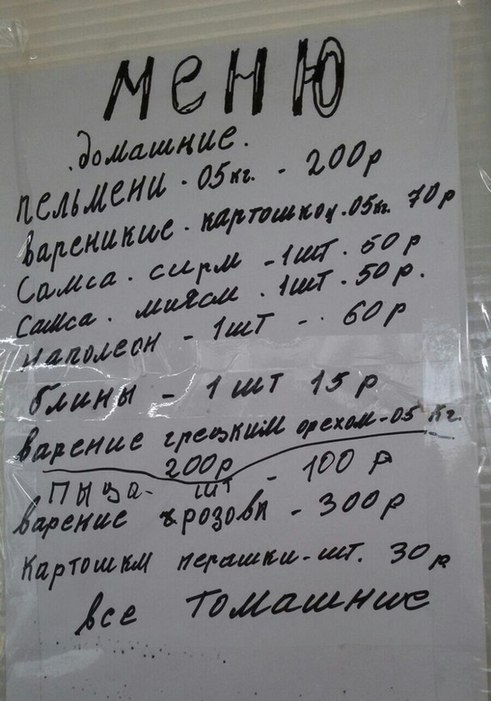 меню
домашние.
пельмени. 05кг. - 200р
вареникие. картошкой. 05кг. 70р
Самса. сирм - 1шт. 50р
самса. миясм. 1шт. 50р.
наполеон - 1шт -. 60р
блины - 1шт 15р
варение грецким орехом - 05 кг.
200р
Пыза - шт - 100р
варение крозовы - 300р
Картошкм перашки - шт. 30р
все томашние